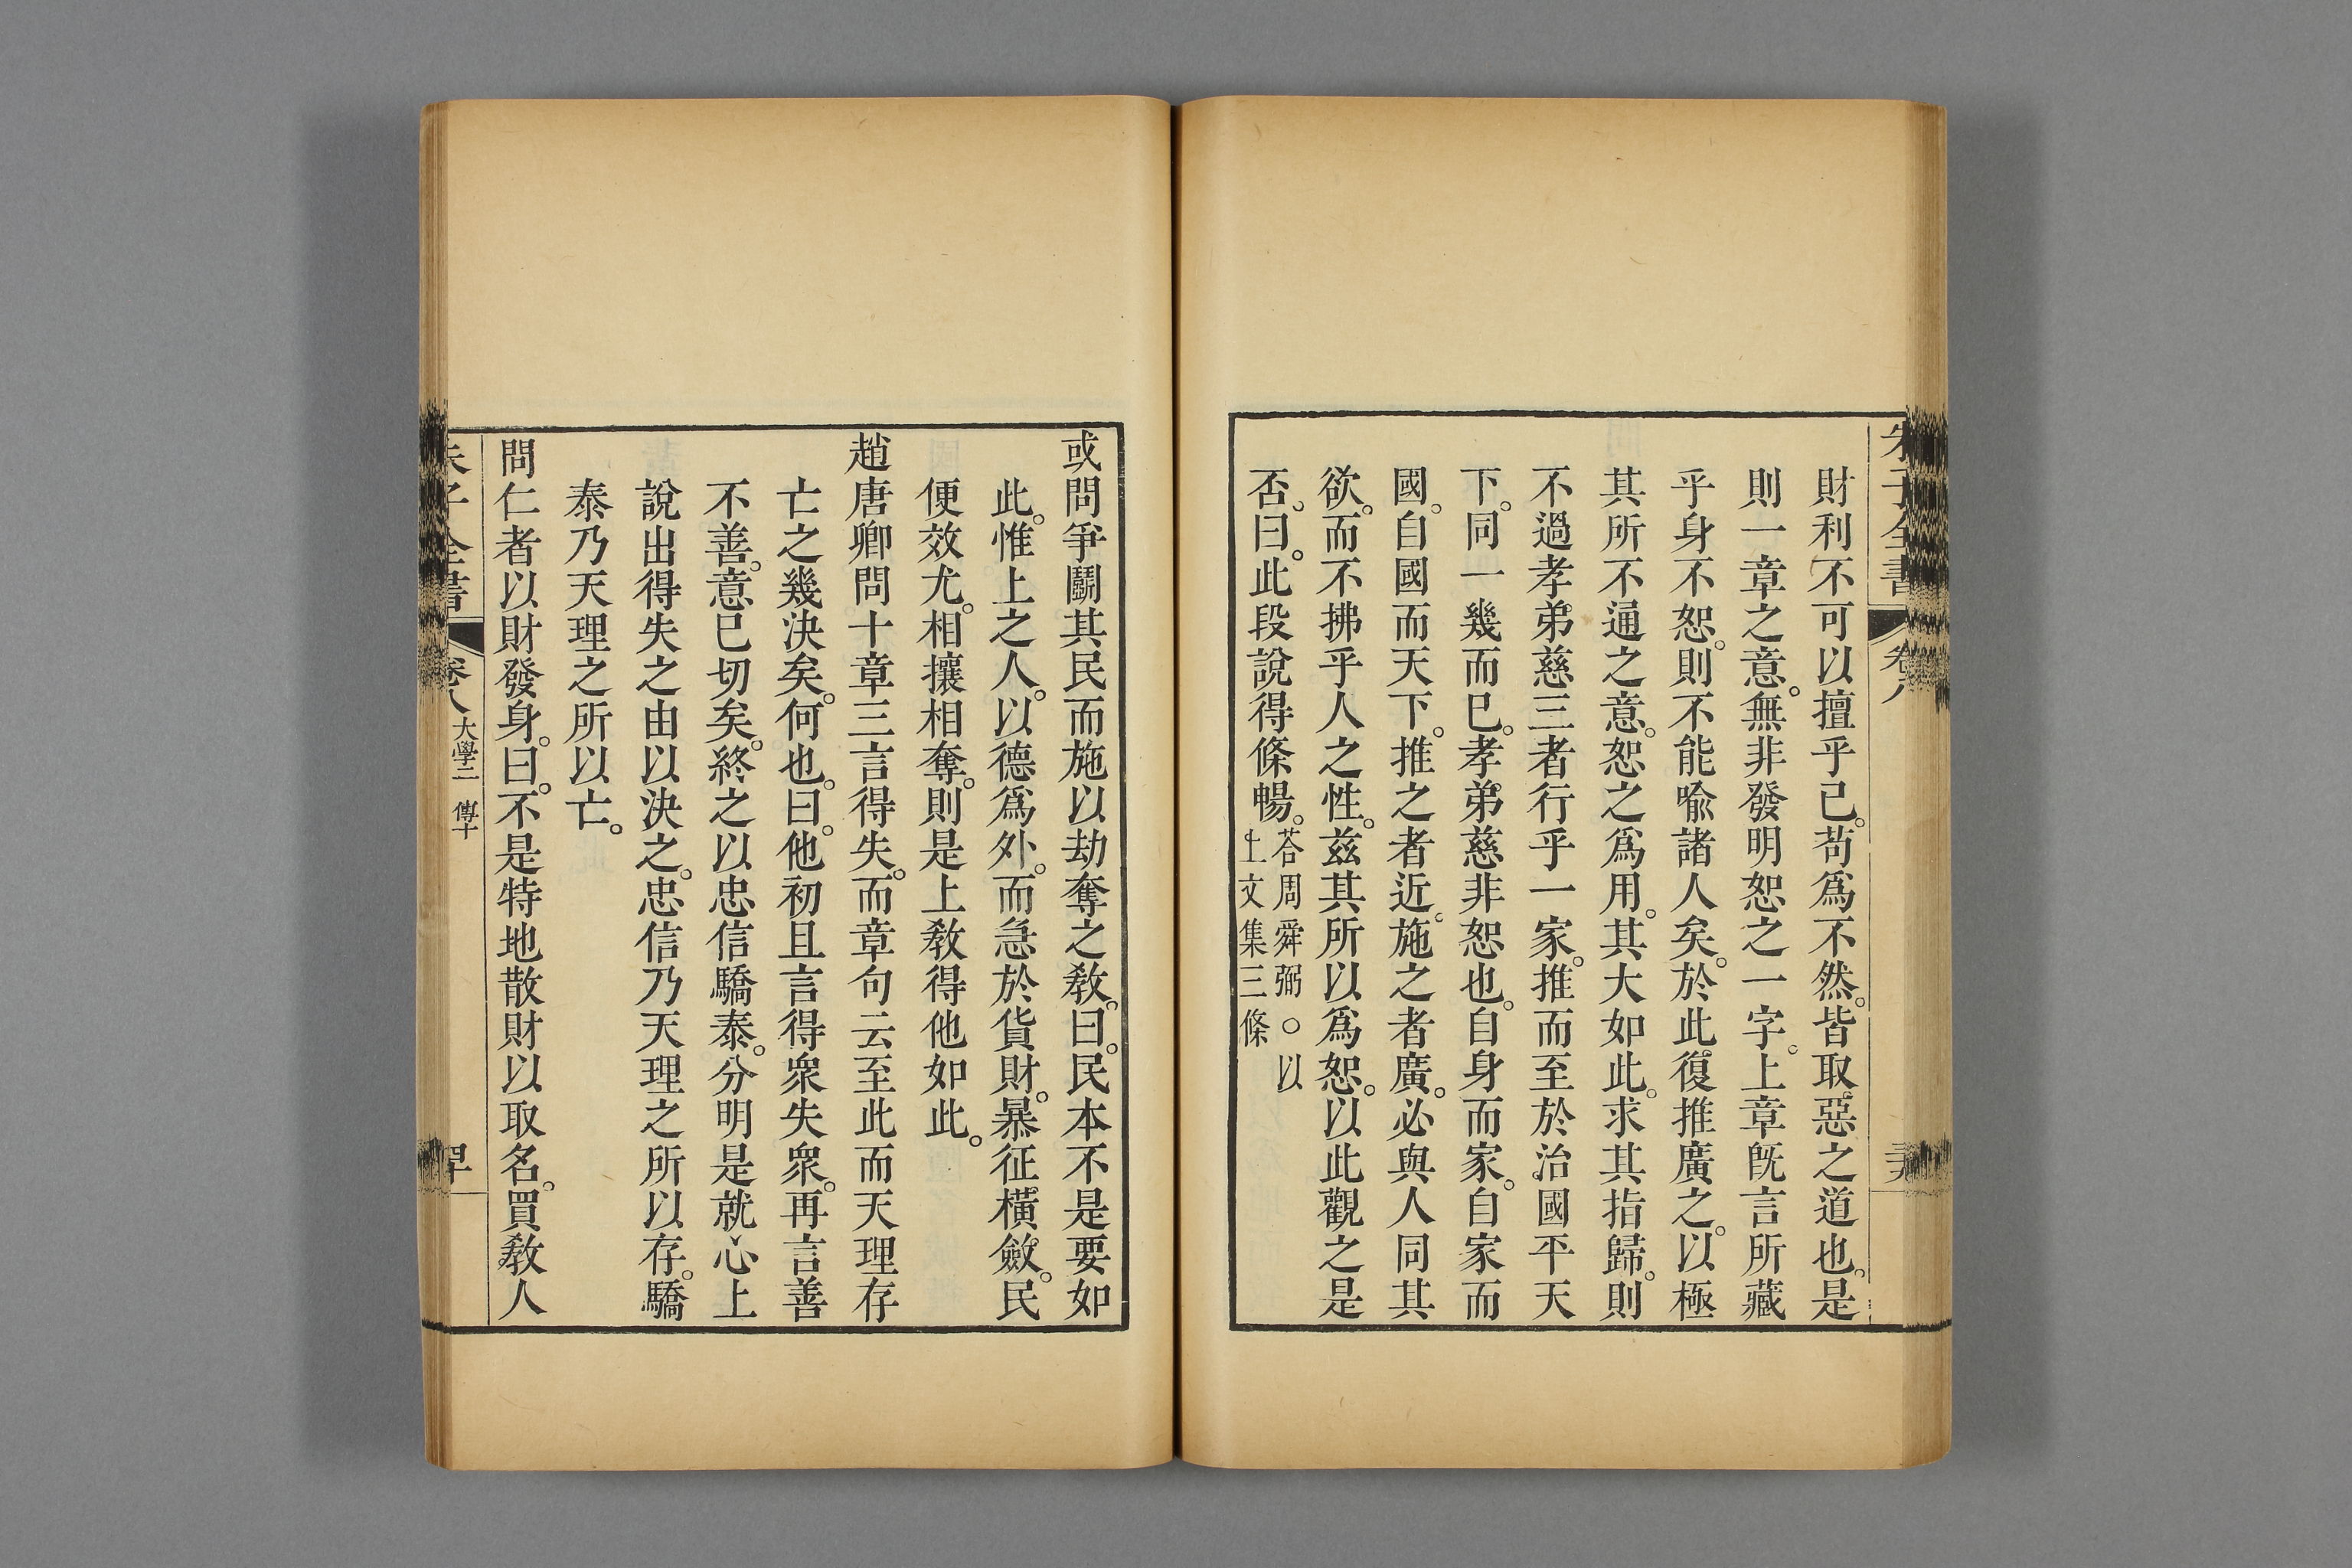 朱子全書 卷八
財利不可以擅乎己。苟爲不然。皆取惡之道也。是
則一章之意。無非發明恕之一字。上章旣言所藏
乎身不恕。則不能喩諸人矣。於此復推廣之。以極
其所不通之意。恕之爲用。其大如此。求其指歸。則
不過孝弟慈三者行乎一家。推而至於治國平天
下。同一幾而已。孝弟慈非恕也。自身而家。自家而
國。自國而天下。推之者近。施之者廣。必與人同其
欲。而不拂乎人之性。茲其所以爲恕。以此觀之是
否。曰。此段說得條暢。答周舜弼○以
上文集三條
或問爭鬭其民而施以劫奪之敎。曰。民本不是要如
此。惟上之人。以德爲外。而急於貨財。暴征橫斂。民
便效尤。相攘相奪。則是上敎得他如此。
趙唐卿問十章三言得失。而章句云至此而天理存
亡之幾決矣。何也。曰。他初且言得衆失衆。再言善
不善。意已切矣。終之以忠信驕泰。分明是就心上
說出得失之由以決之。忠信乃天理之所以存。驕
泰乃天理之所以亡。
問仁者以財發身。曰。不是特地散財以取名。買敎人
朱子全書 卷八 大學二 傳十